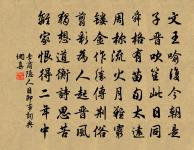 文王喻復今朝是
子晉吹笙此日同
舜格有苗旬太遠
周稱流火月難窮
鏤金作勝傳荊俗
剪彩為人起晉風
獨想道衡詩思苦
離家恨得二年中
李商隱人日即事詞典
網